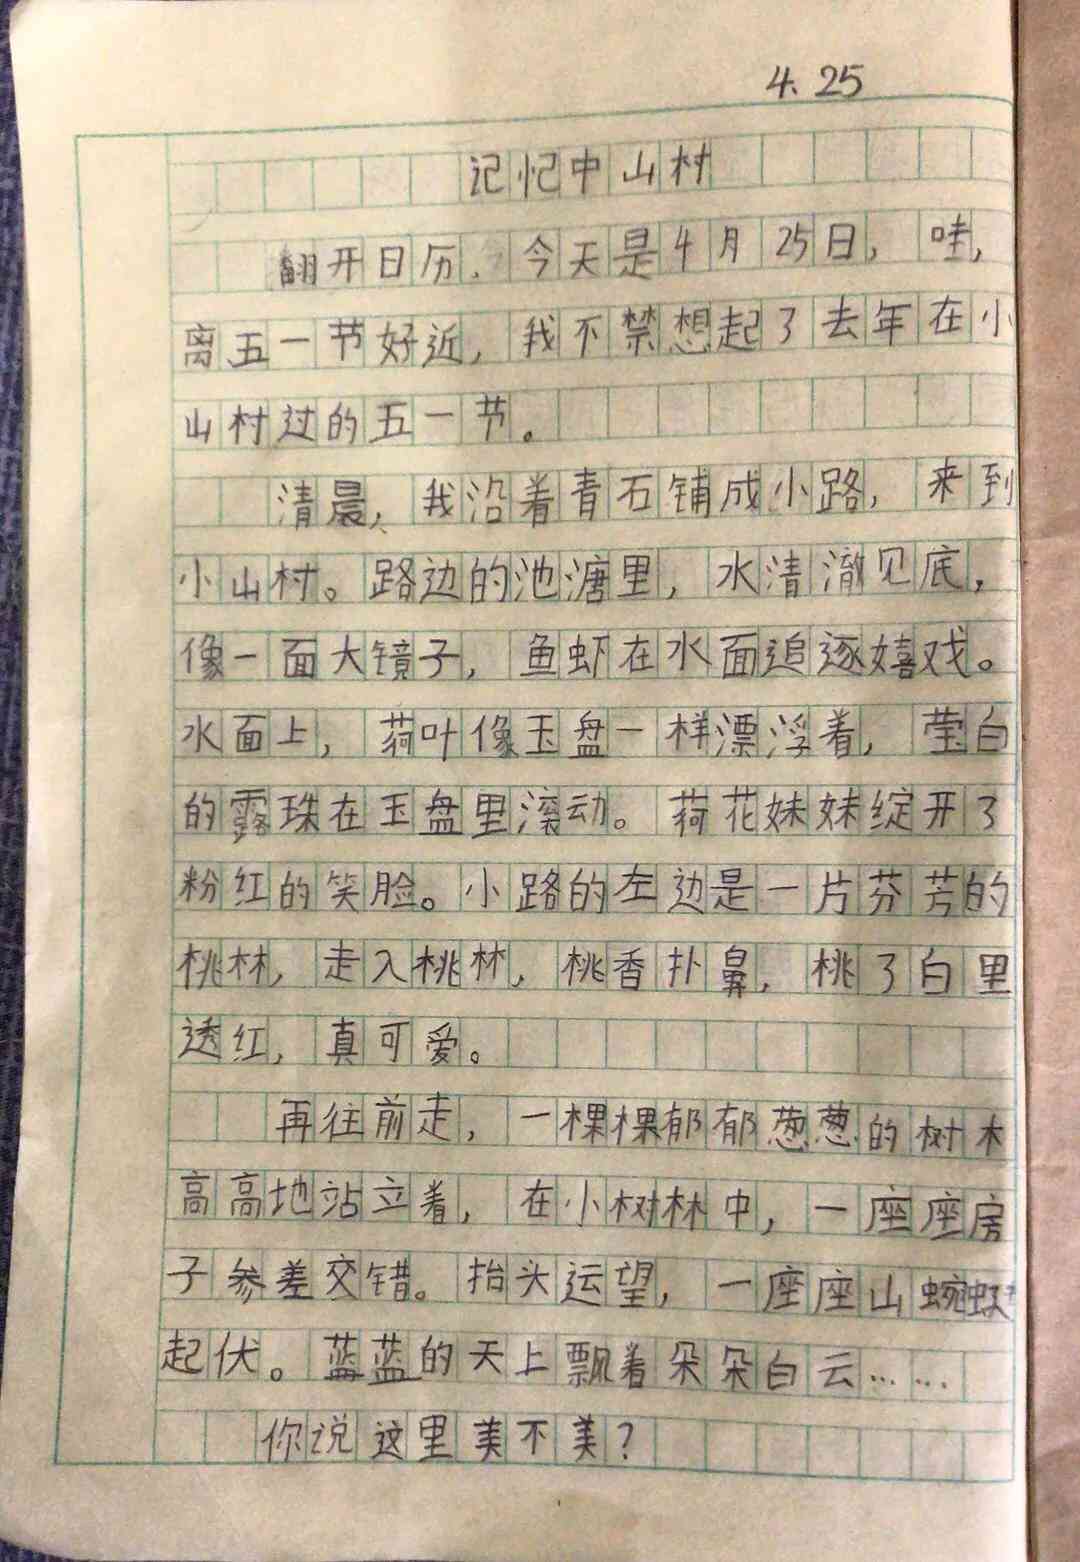 4.25
记忆中山村
翻开日历，今天是4月25日，哇，
离五一节好近，我不禁想起了去年在小
山村过的五一节。
清晨，我沿着青石铺成小路，来到
小山村。路边的池溏里，水清澈见底，
像一面大镜子，鱼虾在水面追逐嬉戏。
水面上，荷叶像玉盘一样漂浮着，莹白
的露珠在玉盘里滚动。荷花妹妹绽开了
粉红的笑脸。小路的左边是一片芬芳的
桃林，走入桃林，桃香扑鼻，桃了白里
透红，真可爱。
再往前走，一棵棵郁郁葱葱的树木
高高地站立着，在小树林中，一座座房
子参差交错。抬头运望，一座座山蜿蜒
起伏。蓝蓝的天上飘着朵朵白云……
你说这里美不美？